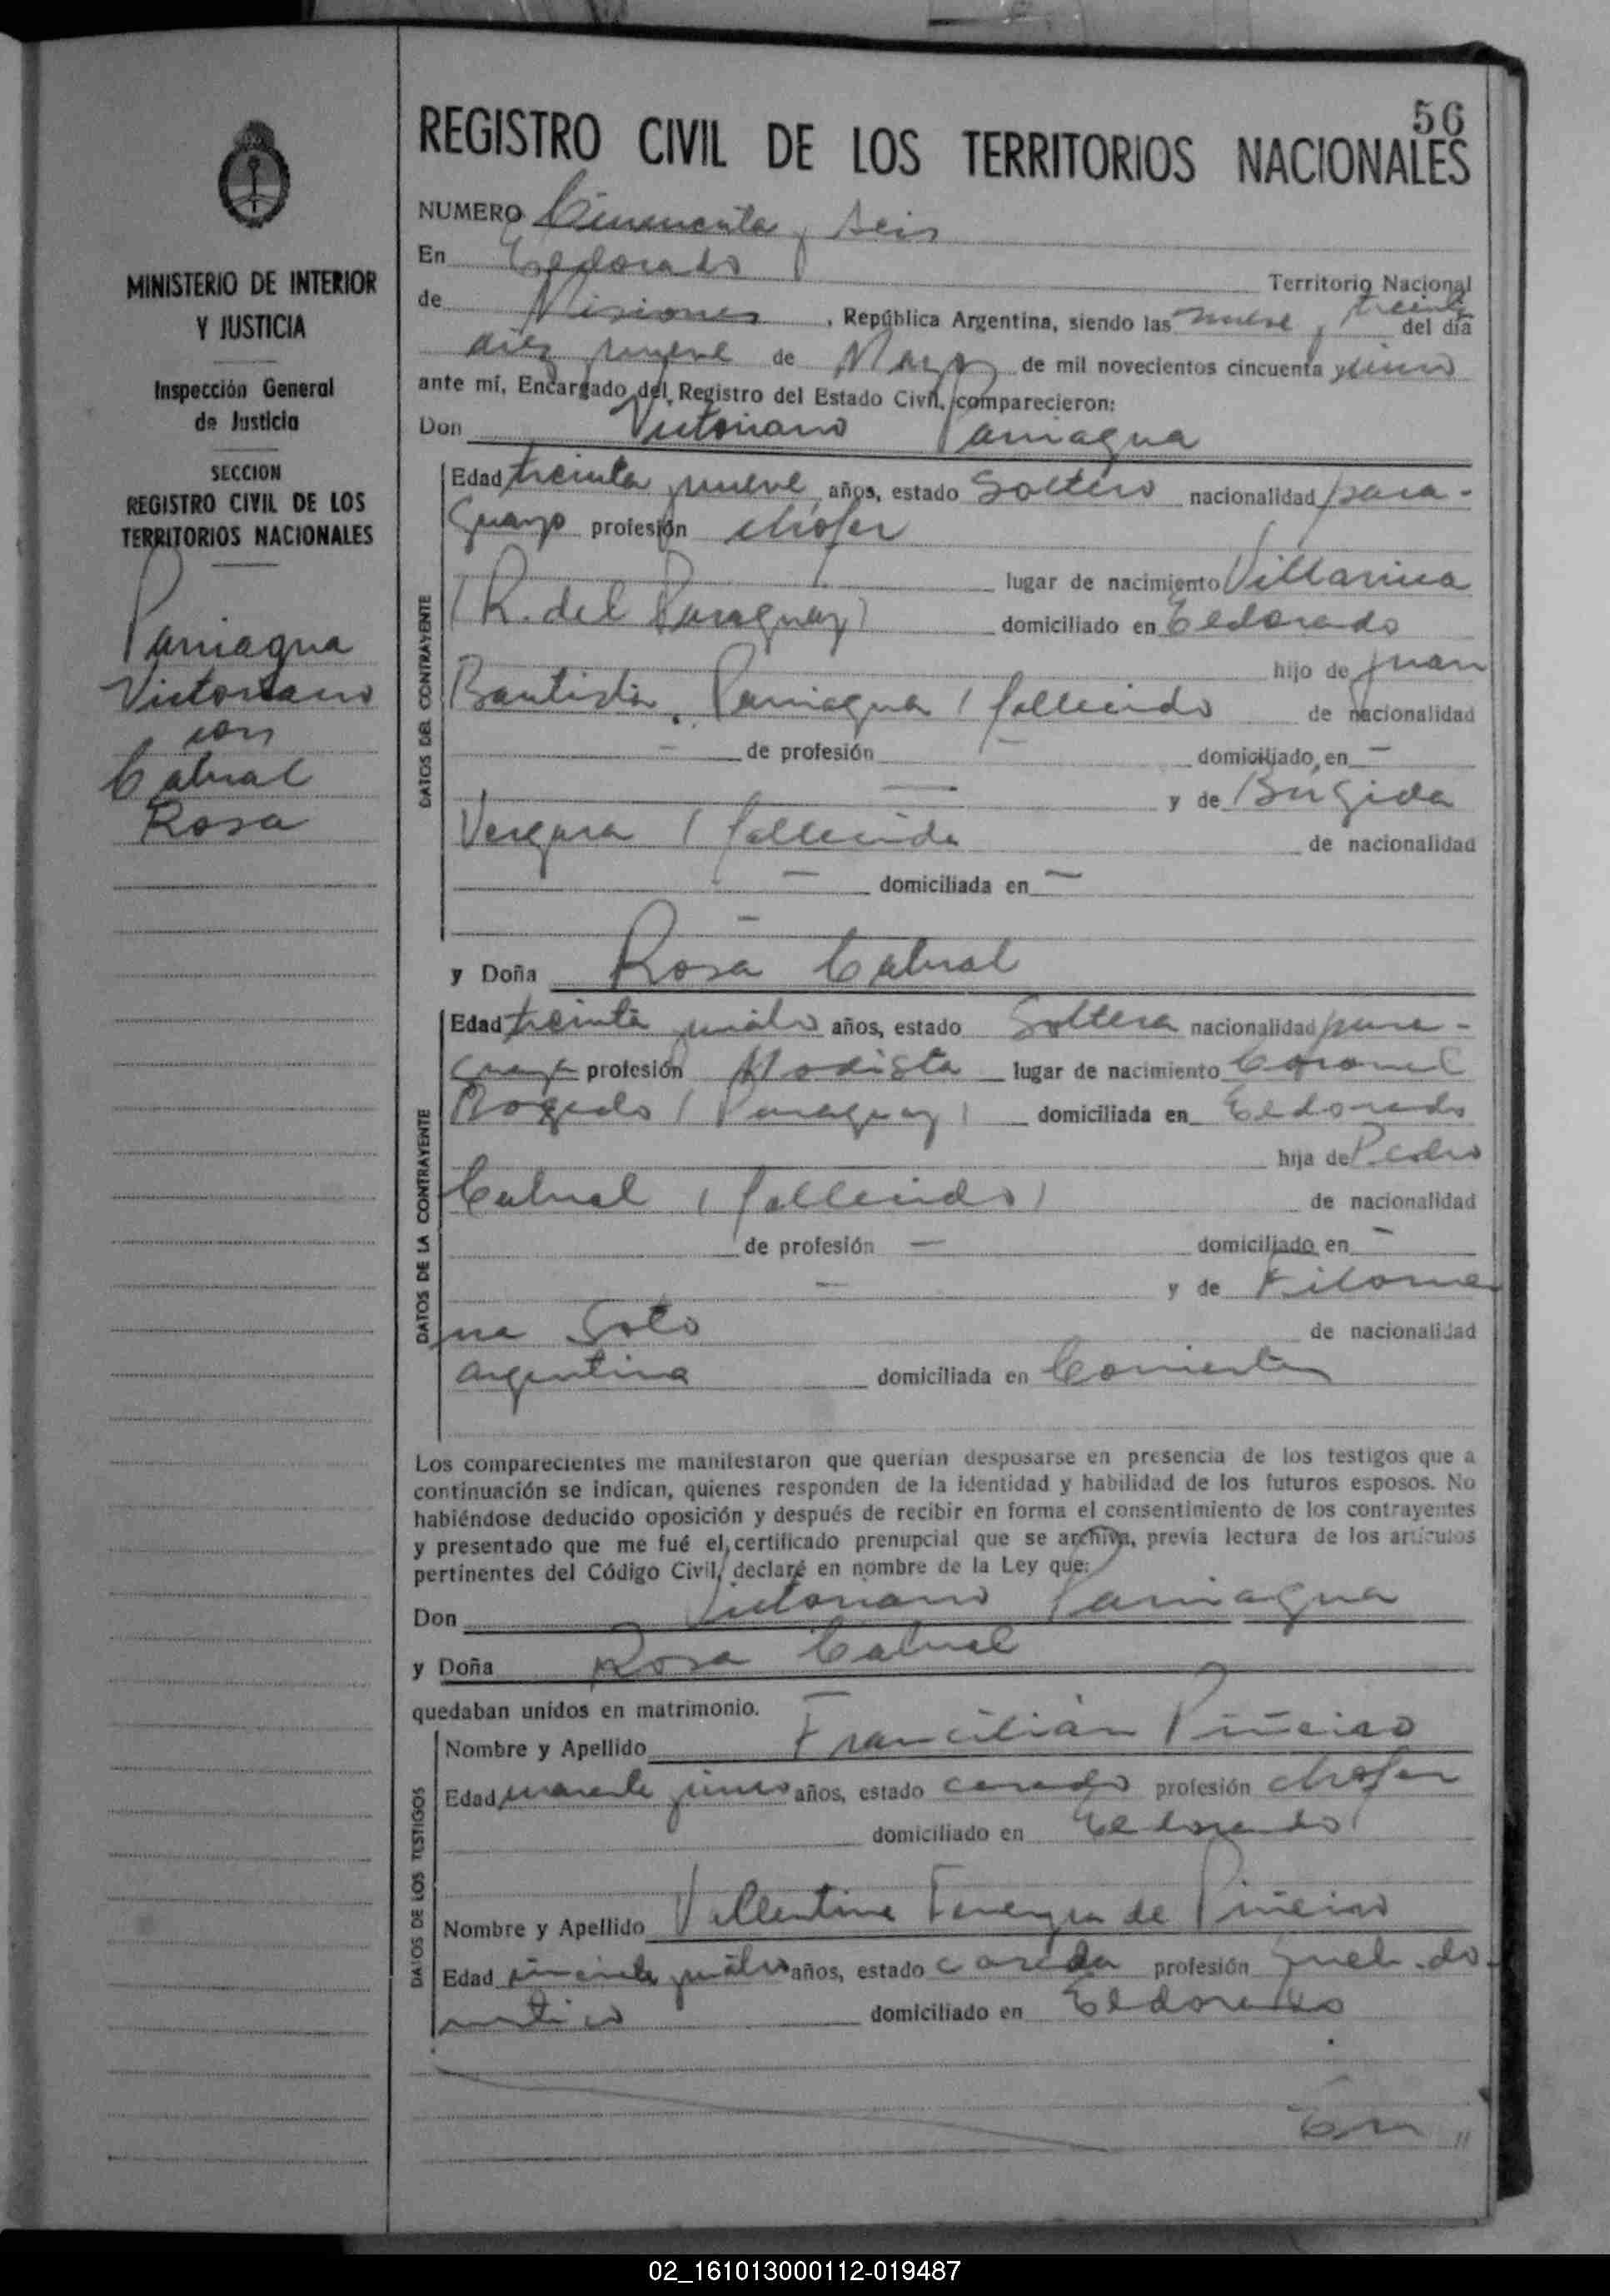 56
REGISTRO CIVIL DE LOS TERRITORIOS NACIONALES
MINISTERIO DE INTERIOR
Y JUSTICIA
Inspección General
de Justicia
SECCION
REGISTRO CIVIL DE LOS
TERRITORIOS NACIONALES
Paniagua
Victoriano
con
Cabral
Rosa
NUMERO Cincuenta y seis
En Eldorado
Territorio Nacional
de Misiones, República Argentina, siendo las nueve y treinta del día
diez y nueve de Mayo de mil novecientos cincuenta y cinco
ante mí, Encargado del Registro del Estado Civil, comparecieron:
Don Victoriano Paniagua
DATOS DEL CONTRAYENTE
Edad treinta y nueve años, estado Soltero nacionalidad para-
guayo profesión chofer
lugar de nacimiento Villarrica
(R. del Paraguay) domiciliado en Eldorado
hijo de Juan
Bautista Paniagua (fallecido de nacionalidad
— de profesión — domiciliado en —
— y de Brígida
Vergara (fallecida de nacionalidad
— domiciliada en —
—
y Doña Rosa Cabral
DATOS DE LA CONTRAYENTE
Edad treinta y cuatro años, estado Soltera nacionalidad para-
guaya profesión Modista lugar de nacimiento Coronel
Bogado (Paraguay) domiciliada en Eldorado
hija de Pedro
Cabral (fallecido) de nacionalidad
de profesión — domiciliado en —
— y de Filome
na Soto de nacionalidad
argentina domiciliada en Corrientes
Los comparecientes me manifestaron que querían desposarse en presencia de los testigos que a
continuación se indican, quienes responden de la identidad y habilidad de los futuros esposos. No
habiéndose deducido oposición y después de recibir en forma el consentimiento de los contrayentes
y presentado que me fué el certificado prenupcial que se archiva, previa lectura de los artículos
pertinentes del Código Civil, declaré en nombre de la Ley que:
Don Victoriano Paniagua
y Doña Rosa Cabral
quedaban unidos en matrimonio.
DATOS DE LOS TESTIGOS
Nombre y Apellido Francilián Piñeiro
Edad cuarenta y cinco años, estado casado profesión chofer
domiciliado en Eldorado
Nombre y Apellido Vallentina de Piñeiro
Edad cuatro años, estado casada profesión queh. do-
mestico domiciliado en Eldorado
En "
02_161013000112-019487